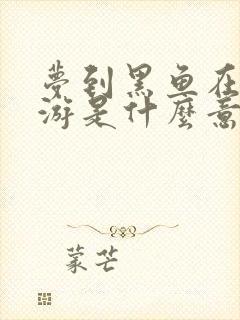 夢到黑魚在
游是什麼意
蒙芒